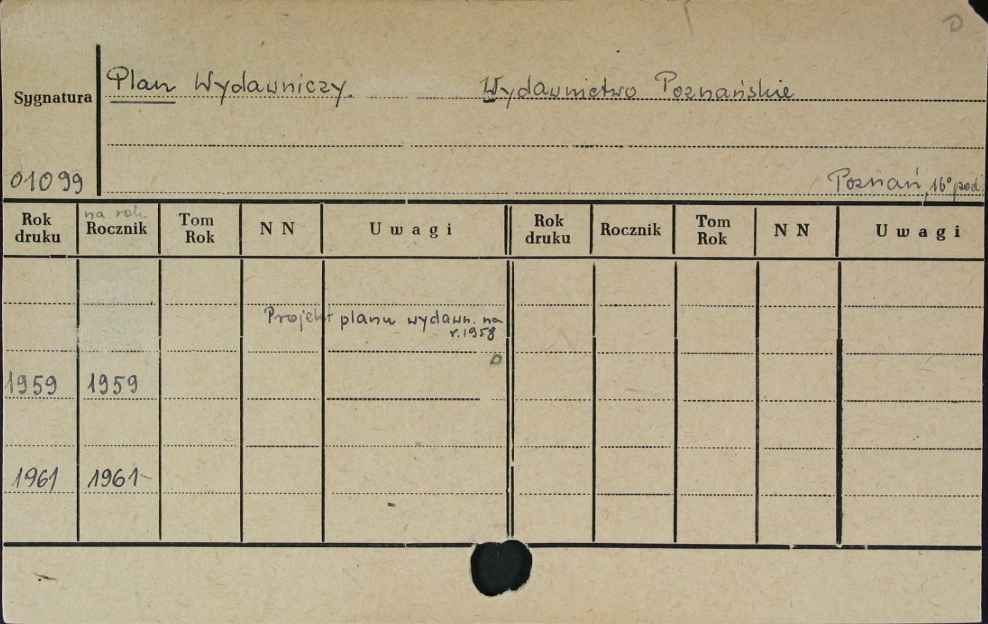 D
Plan Wydawniczy. Wydawnictwo Poznańskie
Sygnatura
01099
Poznań, 16° pod.
Rok druku na rok Rocznik Tom Rok N N Uwagi Rok druku Rocznik Tom Rok N N Uwagi
Projekt planu wydawn. na
r. 1958
D
1959 1959
1961 1961-